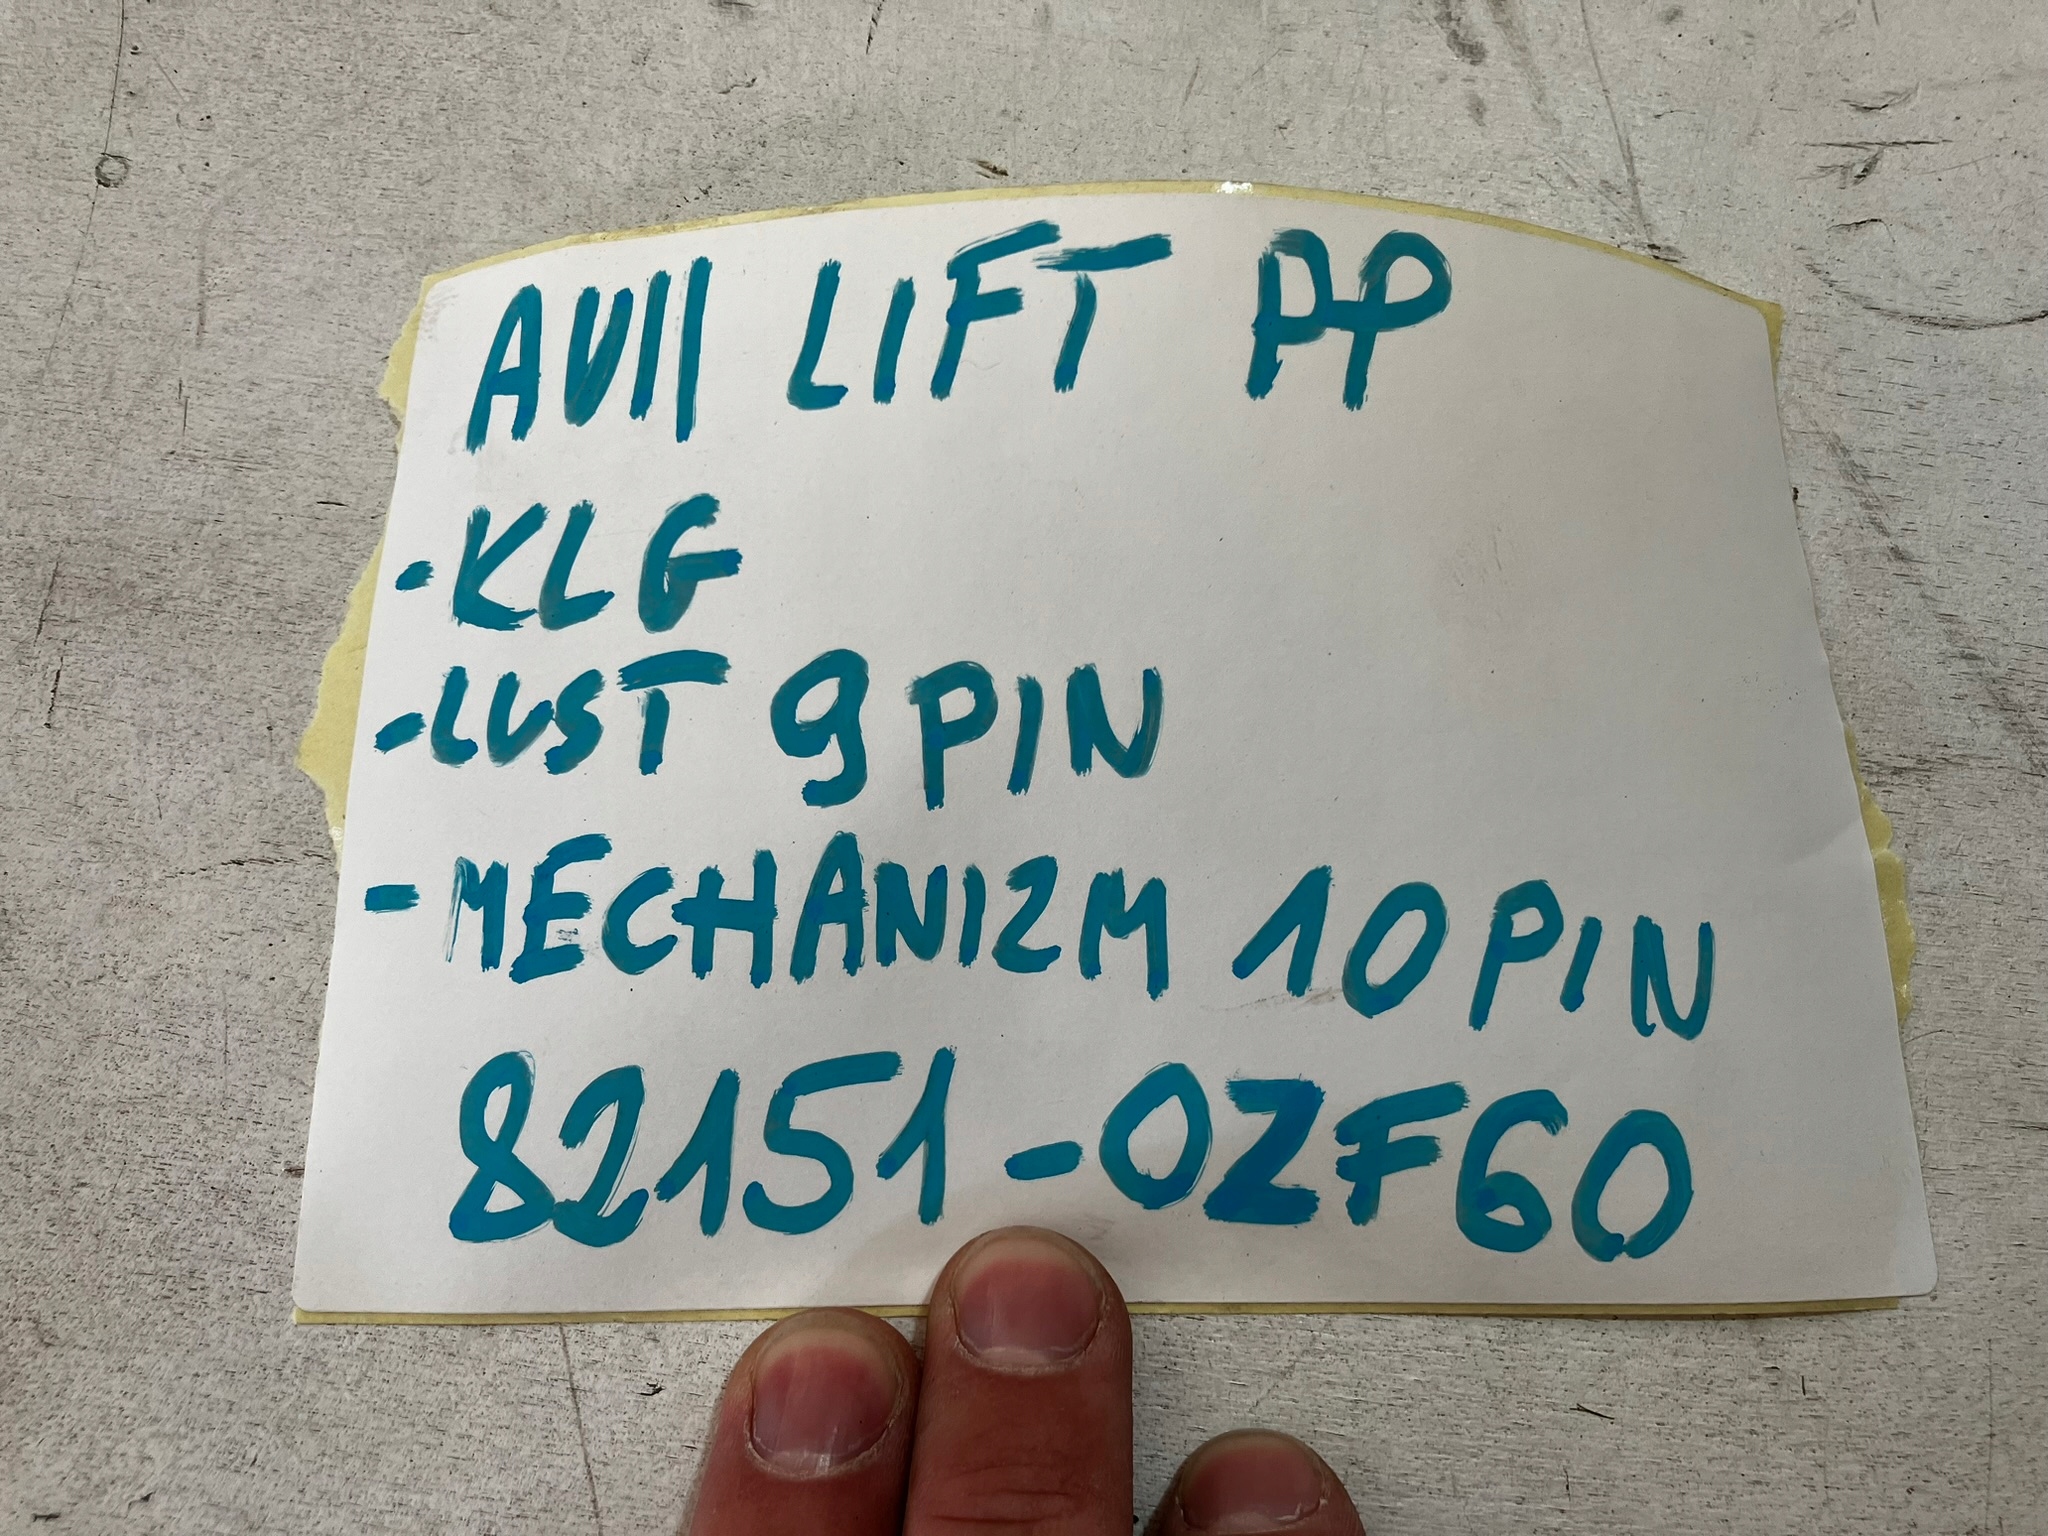 AUII LIFT PP
-KLG
-LUST 9PIN
-MECHANIZM 10PIN
82151-0ZF60